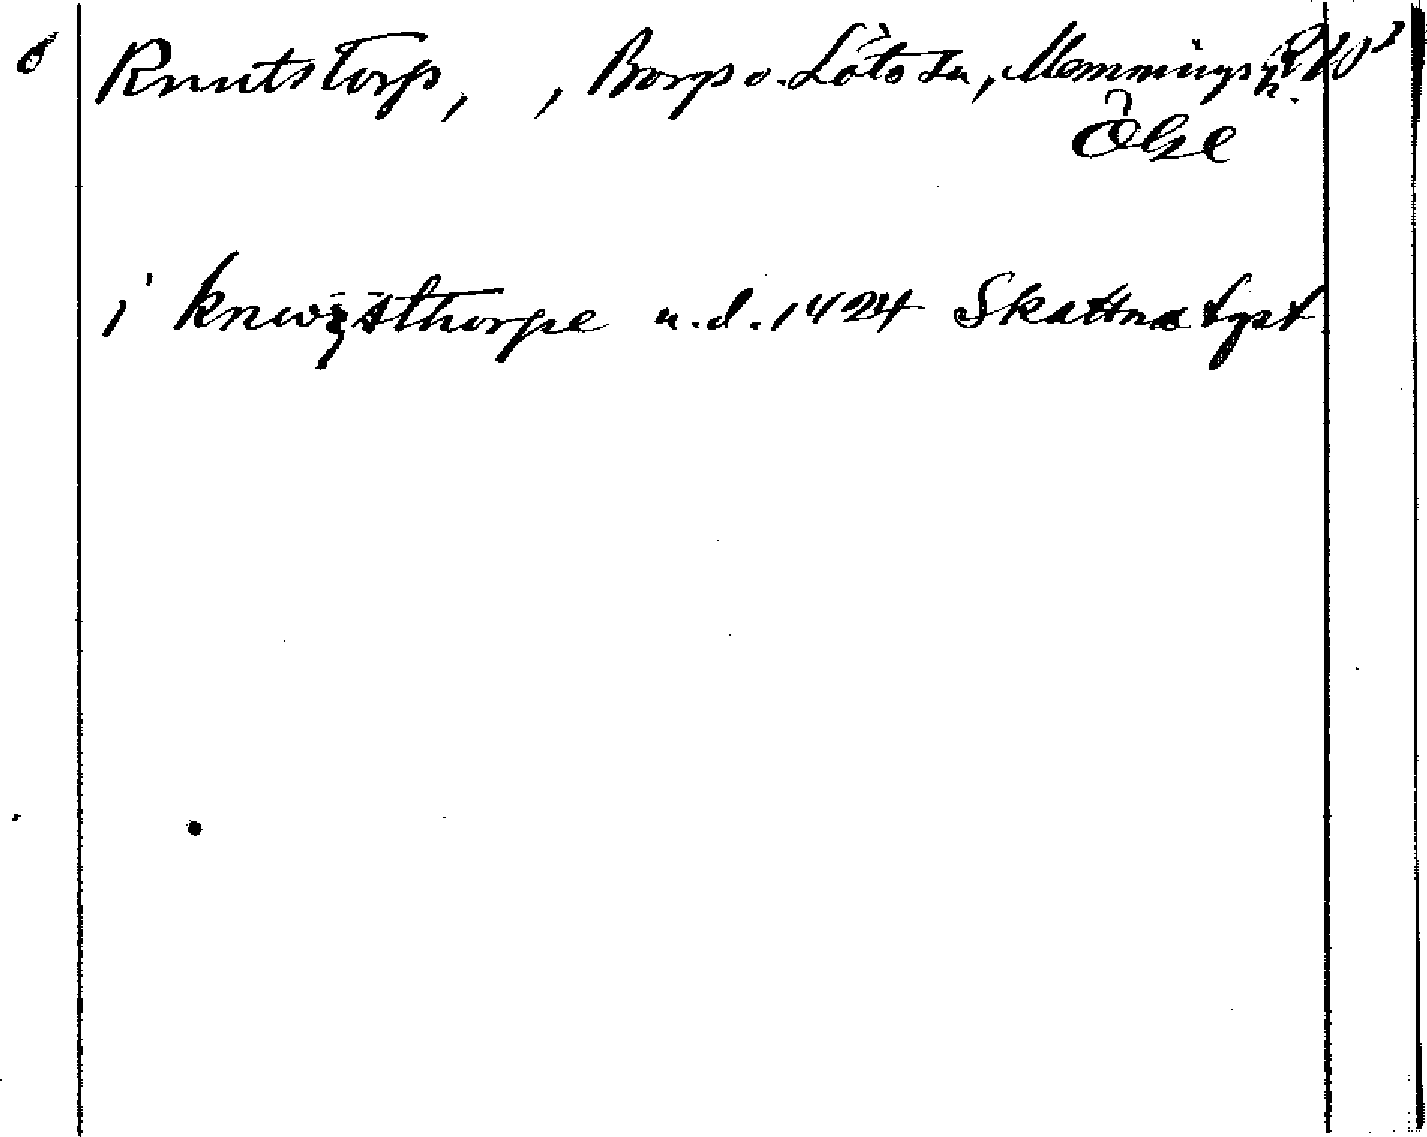 Knutstorp, , Borg o. Löts sn, Memmings h.
Ögl
i knwzsthorpe u.d. 1424 Skattna tgst